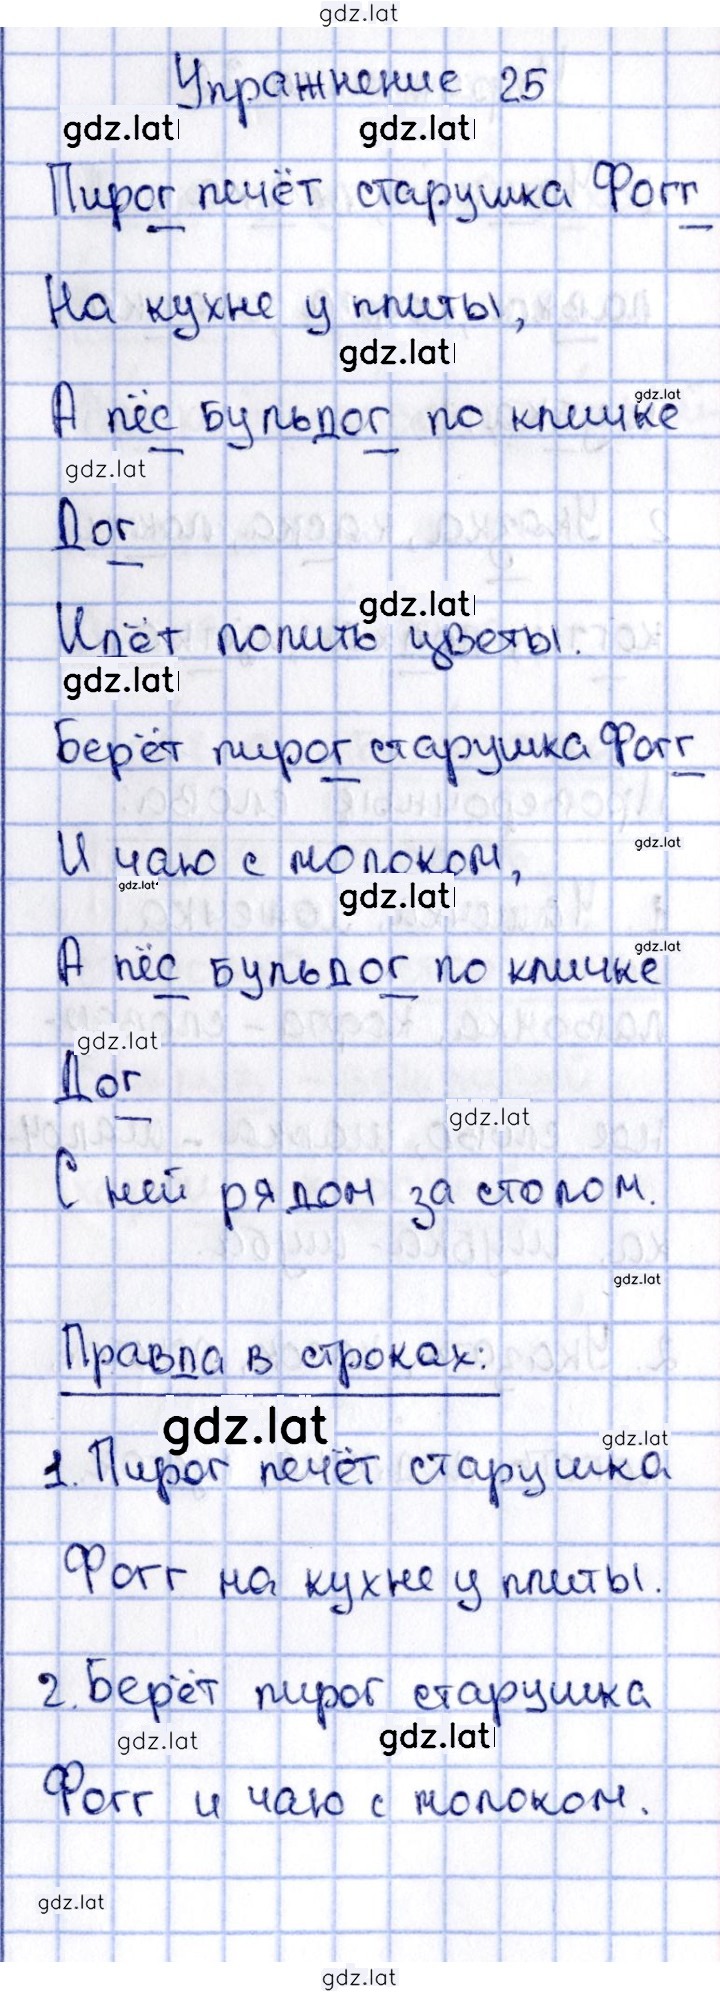 gdz.lat
Упражнение 25
gdz.lat gdz.lat
Пирог печёт старушка Фогг
На кухне у плиты,
gdz.lat
gdz.lat
А пёс бульдог по клишке
gdz.lat
Дог
gdz.lat
Идёт полить цветы.
gdz.lat
Берёт пирог старушка Фогг
gdz.lat
И чаю с молоком,
gdz.lat gdz.lat
gdz.lat
А пёс бульдог по кличке
gdz.lat
Дог
gdz.lat
С ней рядом за столом.
gdz.lat
Правда в строках:
gdz.lat
gdz.lat
1. Пирог печёт старушка
Фогг на кухне у плиты.
2. Берёт пирог старушка
gdz.lat gdz.lat
Фогг и чаю с молоком.
gdz.lat
gdz.lat